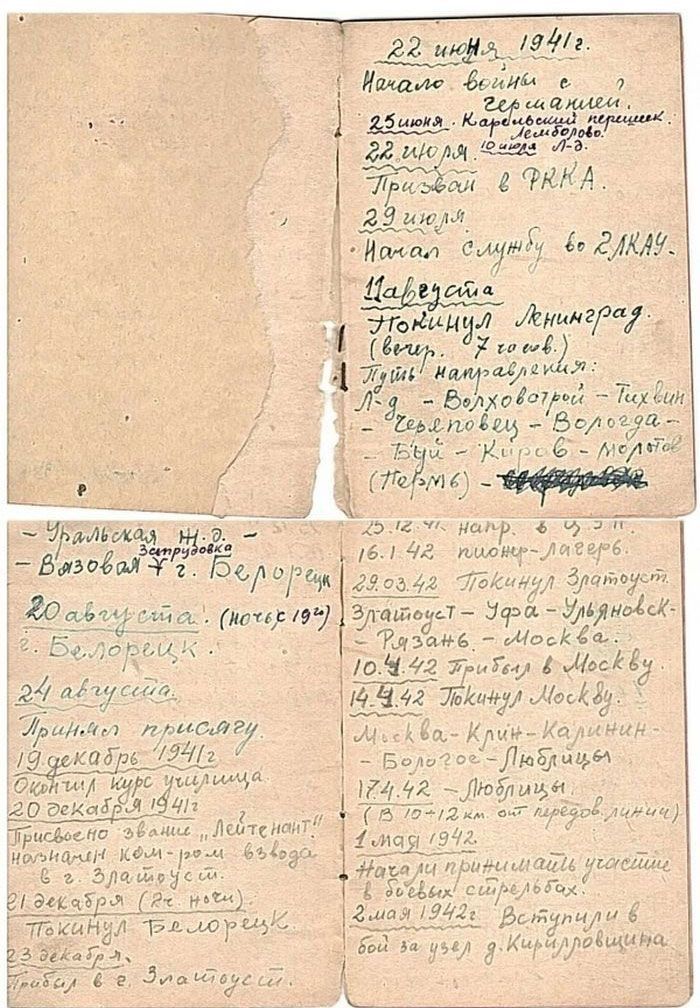 22 июня 1941г.
Начало войны с
Германией.
25 июня. Карельский перешеек.
Лемболово.
22 июля. 10 июля Л-д.
Призван в РККА.
29 июля
Начал службу во 2ЛКАУ-
11 августа
Покинул Ленинград.
(вечер. 7 часов.)
Путь направления:
Л-д - Волховстрой - Тихвин
- Череповец - Вологда -
- Буй - Киров - Молотов
(Пермь) -
- Уральская ж.д. -
Запрудовка
- Вязовая г. Белорецк
20 августа. (ночь с 19го)
г. Белорецк
24 августа.
Принял присягу.
19 декабрь 1941г
Окончил курс училища.
20 декабря 1941г
Присвоено звание „Лейтенант"
назначен ком-ром взвода
в г. Златоуст.
21 декабря (2ч. ночи).
Покинул Белорецк.
23 декабря.
Прибыл в г. Златоуст.
25.12.41. напр. в
16.1.42 пионер-лагерь.
29.03.42 Покинул Златоуст.
Златоуст - Уфа - Ульяновск-
- Рязань - Москва.
10.4.42 Прибыл в Москву.
14.4.42 Покинул Москву.
Москва - Клин - Калинин -
- Бологое - Люблицы
17.4.42 - Люблицы.
(В 10÷12 км. от передов. линии)
1 мая 1942.
Начали принимать участие
в боевых стрельбах.
2 мая 1942г. Вступили в
бой за узел д. Кирилловщина